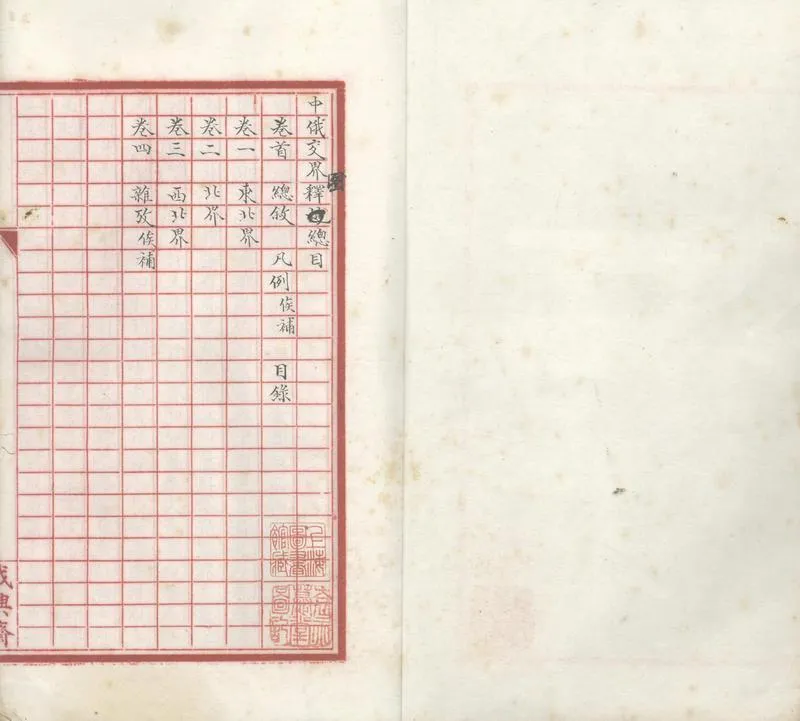 中俄交界釋總目
圖
卷首 總敘 凡例俟補 目錄
卷一 東北界
卷二 北界
卷三 西北界
卷四 雜攷俟補
上海圖書館藏
成興齋